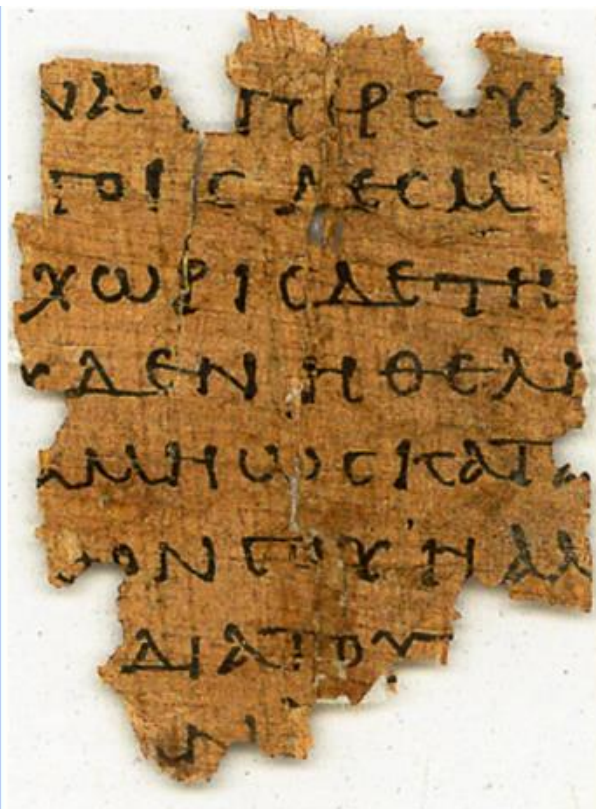 ΝΑ ΠΕΡϹΟΥ
ΤΟΙϹΔΕϹΜ
ΧΩΡΙϹΔΕΤΗ
ΥΔΕΝΗΘΕΛΗ
ΑΜΗΩϹΚΑΤΑ
ΘΟΝϹΟΥΗΑΛ
ΔΙΑΤΟΥ